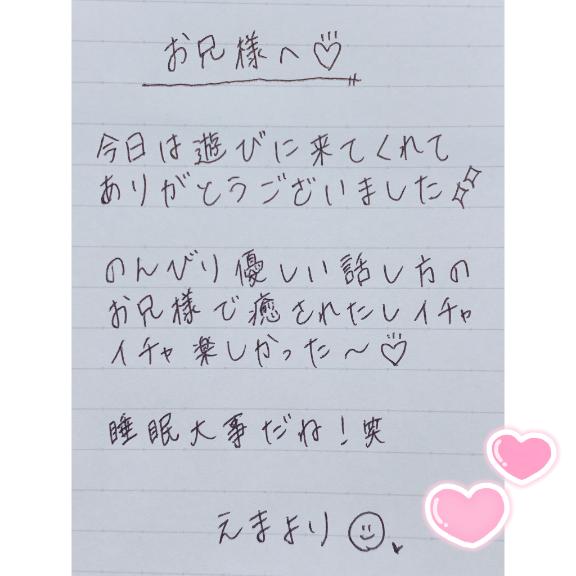 お兄様へ♡
今日は遊びに来てくれて
ありがとうございました✨
のんびり優しい話し方の
お兄様で癒されたしイチャ
イチャ楽しかった〜♡
睡眠大事だね！笑
えまより☺